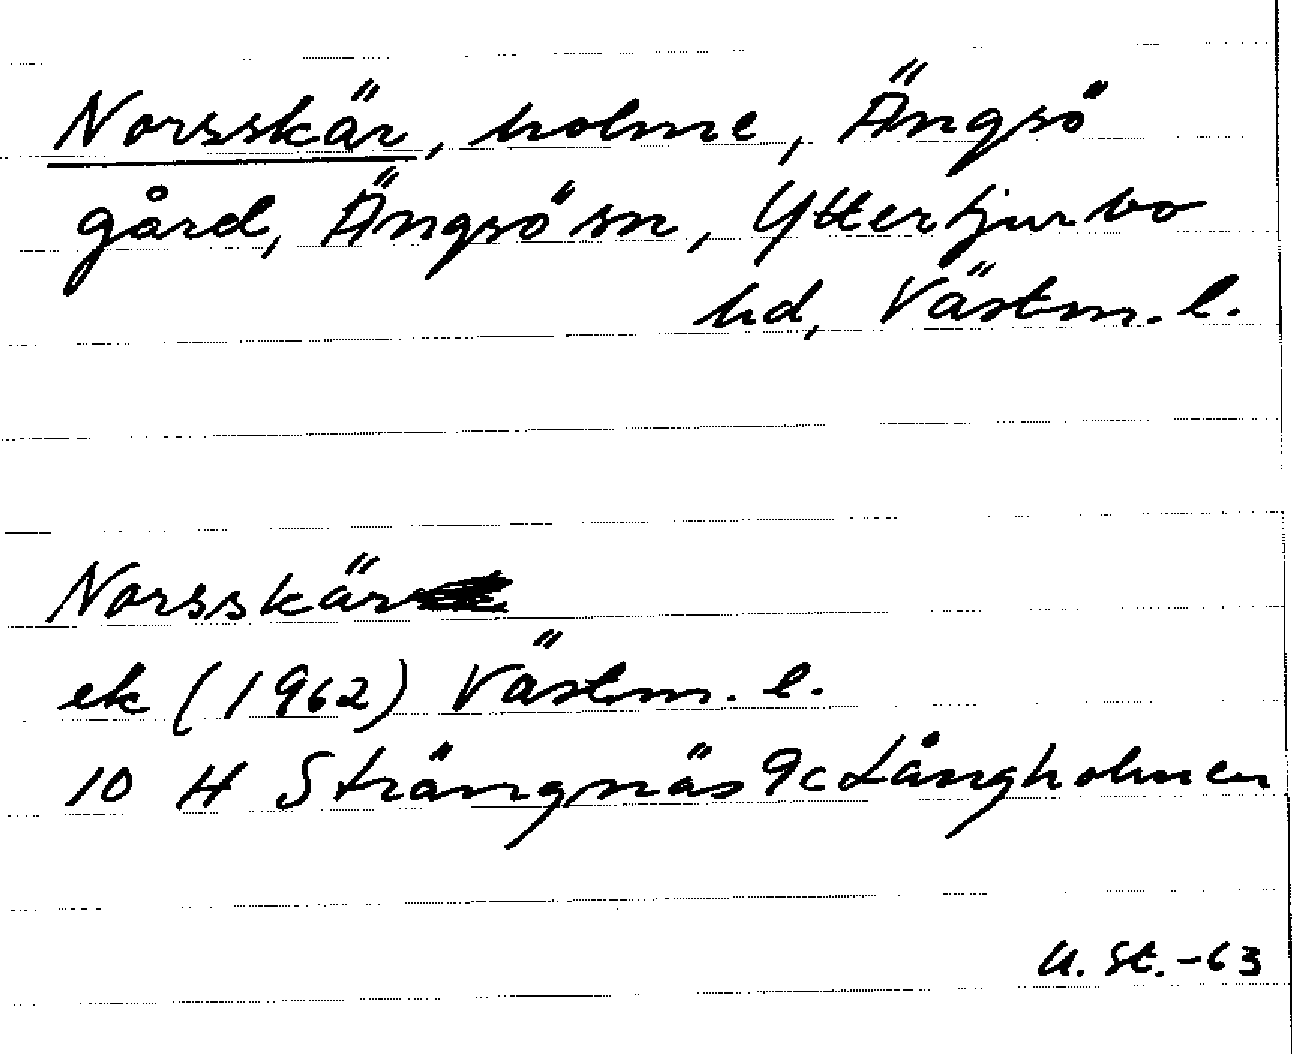 Norsskär, holme, Ängsö
gård, Ängsö sn, Yttertjurbo
hd, Västm. l.
Norsskär
ek (1962) Västm. l.
10 H Strängnäs 9c Långholmen
U. St. -63